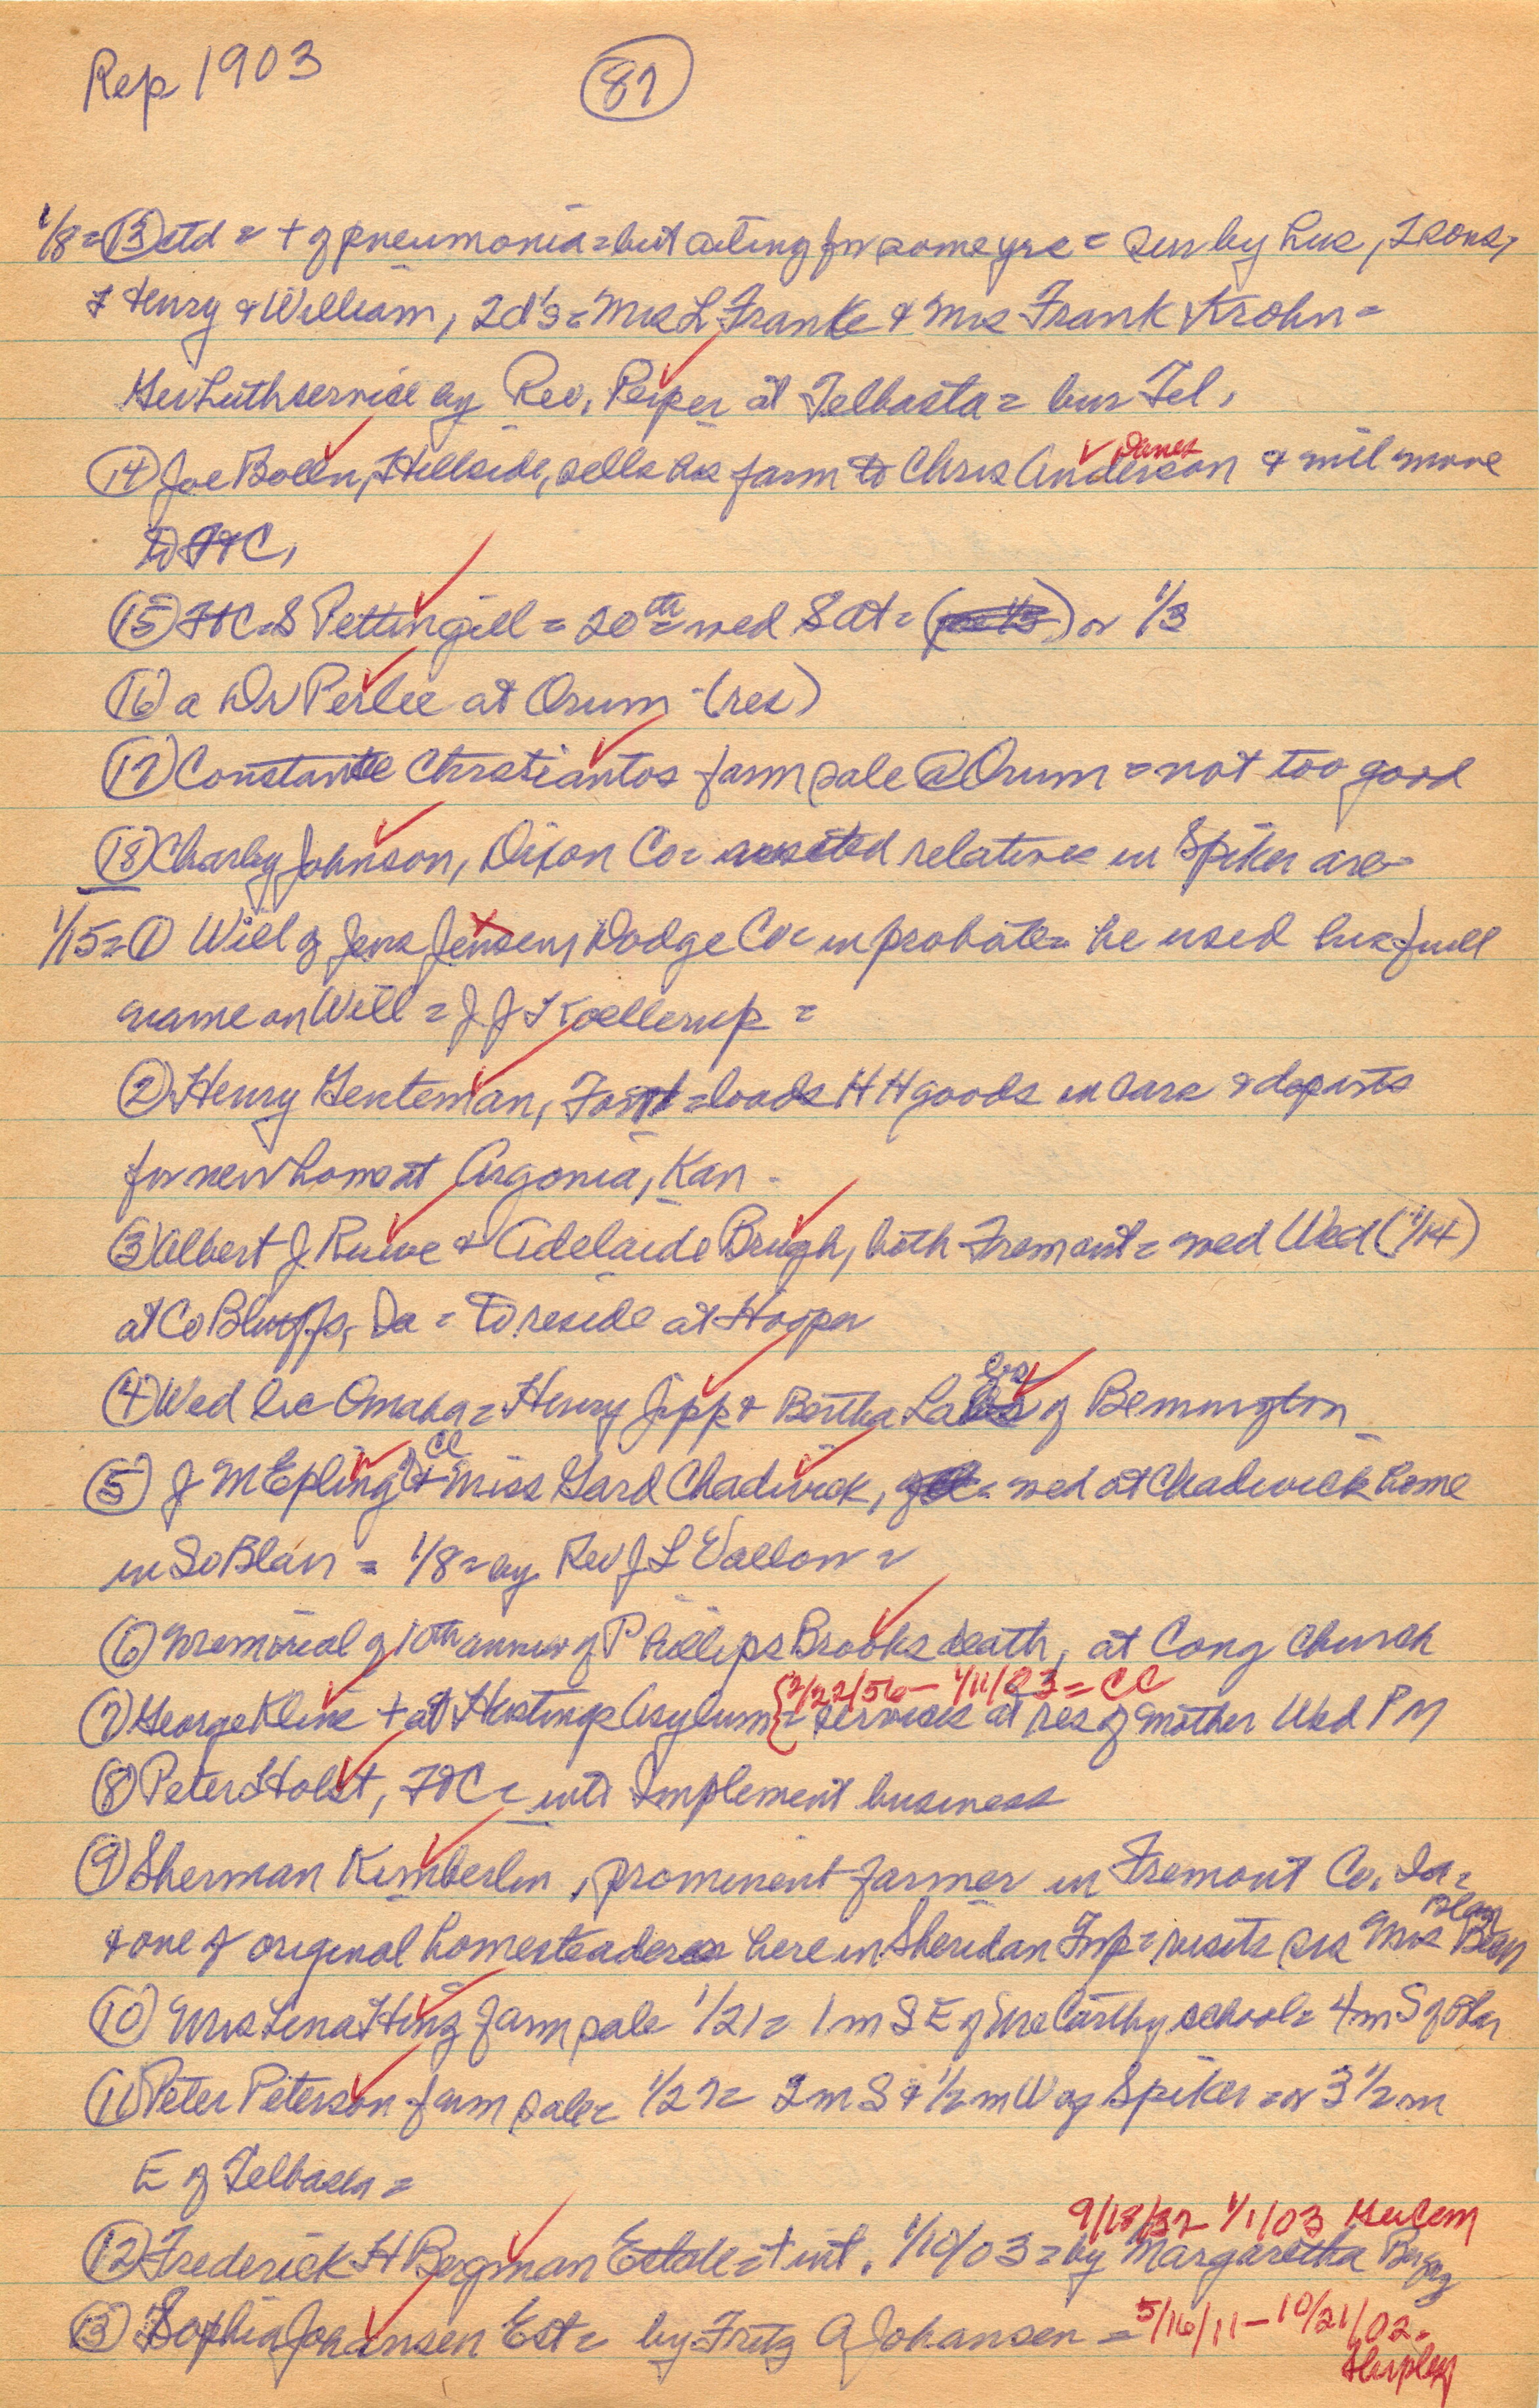 Rep 1903 87
1/8 = 13 ctd = + of pneumonia = but ailing for some yrs = surv by hus, 2 sons,
Henry & William, 2 d's = Mrs L Franke & Mrs Frank Krohn =
Ger Luth service by Rev. Peiper at Telbasta = bur Tel.
14 Joe Bolln, Hillside, sells his farm to Chris Anderson Danes & will move
to FtC,
15 FtC = S Pettingill = 20th wed Sat = or 1/3
16 a Dr Perlee at Orum - (res)
17 Constante Christiantos farm sale @ Orum = not too good
18 Charley Johnson, Dixon Co = visited relatives in Spiker area
1/15 = 1 Will of Jens Jensen, Dodge Co = in probate = he used his full
name on Will = J J Koellerup =
2 Henry Genteman, Font = loads HH goods in cars & departs
for new home at Argonia, Kan -
3 Albert J. Ruwe & Adelaide Brugh, both Fremont = wed Wed (1/14)
at Co Bluffs, Ia = to reside at Hooper
4 Wed lic Omaha = Henry Jipp & Bertha of Bennington
5 J M Epling & Cl Miss Gard Chadwick, = wed at Chadwick home
in So Blair = 1/8 = by Rev J L Vallow =
6 Memorial of 10th anniv of Phillips Brooks death, at Cong Church
7 George Kline + at Hastings Asylum { 2/22/56 - 1/11/03 = CC = services at res of mother Wed PM
8 Peter Holst, FtC = into Implement business
9 Sherman Kimberlin, prominent farmer in Fremont Co. Ia =
& one of original homesteaders here in Sheridan Twp = visits sis Mrs
10 Mrs Lena Hinz farm sale 1/21 = 1 m SE of McCarthy school = 4 m S of Blair
11 Peter Peterson farm sale = 1/27 = 2 m S & 1/2 m W of Spiker = or 3 1/2 m
E of Telbasta =
9/18/32 - 1/1/03 Ger Cem
12 Frederick H Bergman Estate = + int. 1/10/03 = by Margaretha
13 Sophia Johansen Est = by Fritz A Johansen = 5/16/11 - 10/21/02 =